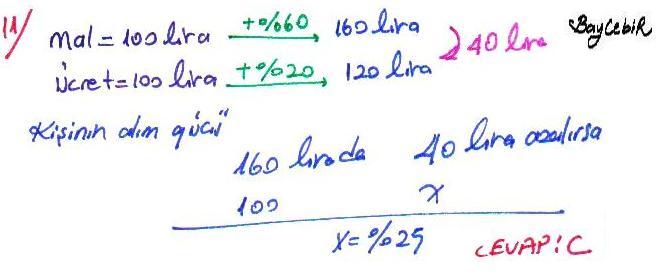 11/ Mal = 100 lira +%60 160 lira BayCebir
40 lira
Ücret = 100 lira +%20 120 lira
Kişinin alım gücü
160 lirada 40 lira azalırsa
100 x
x = %25 CEVAP: C